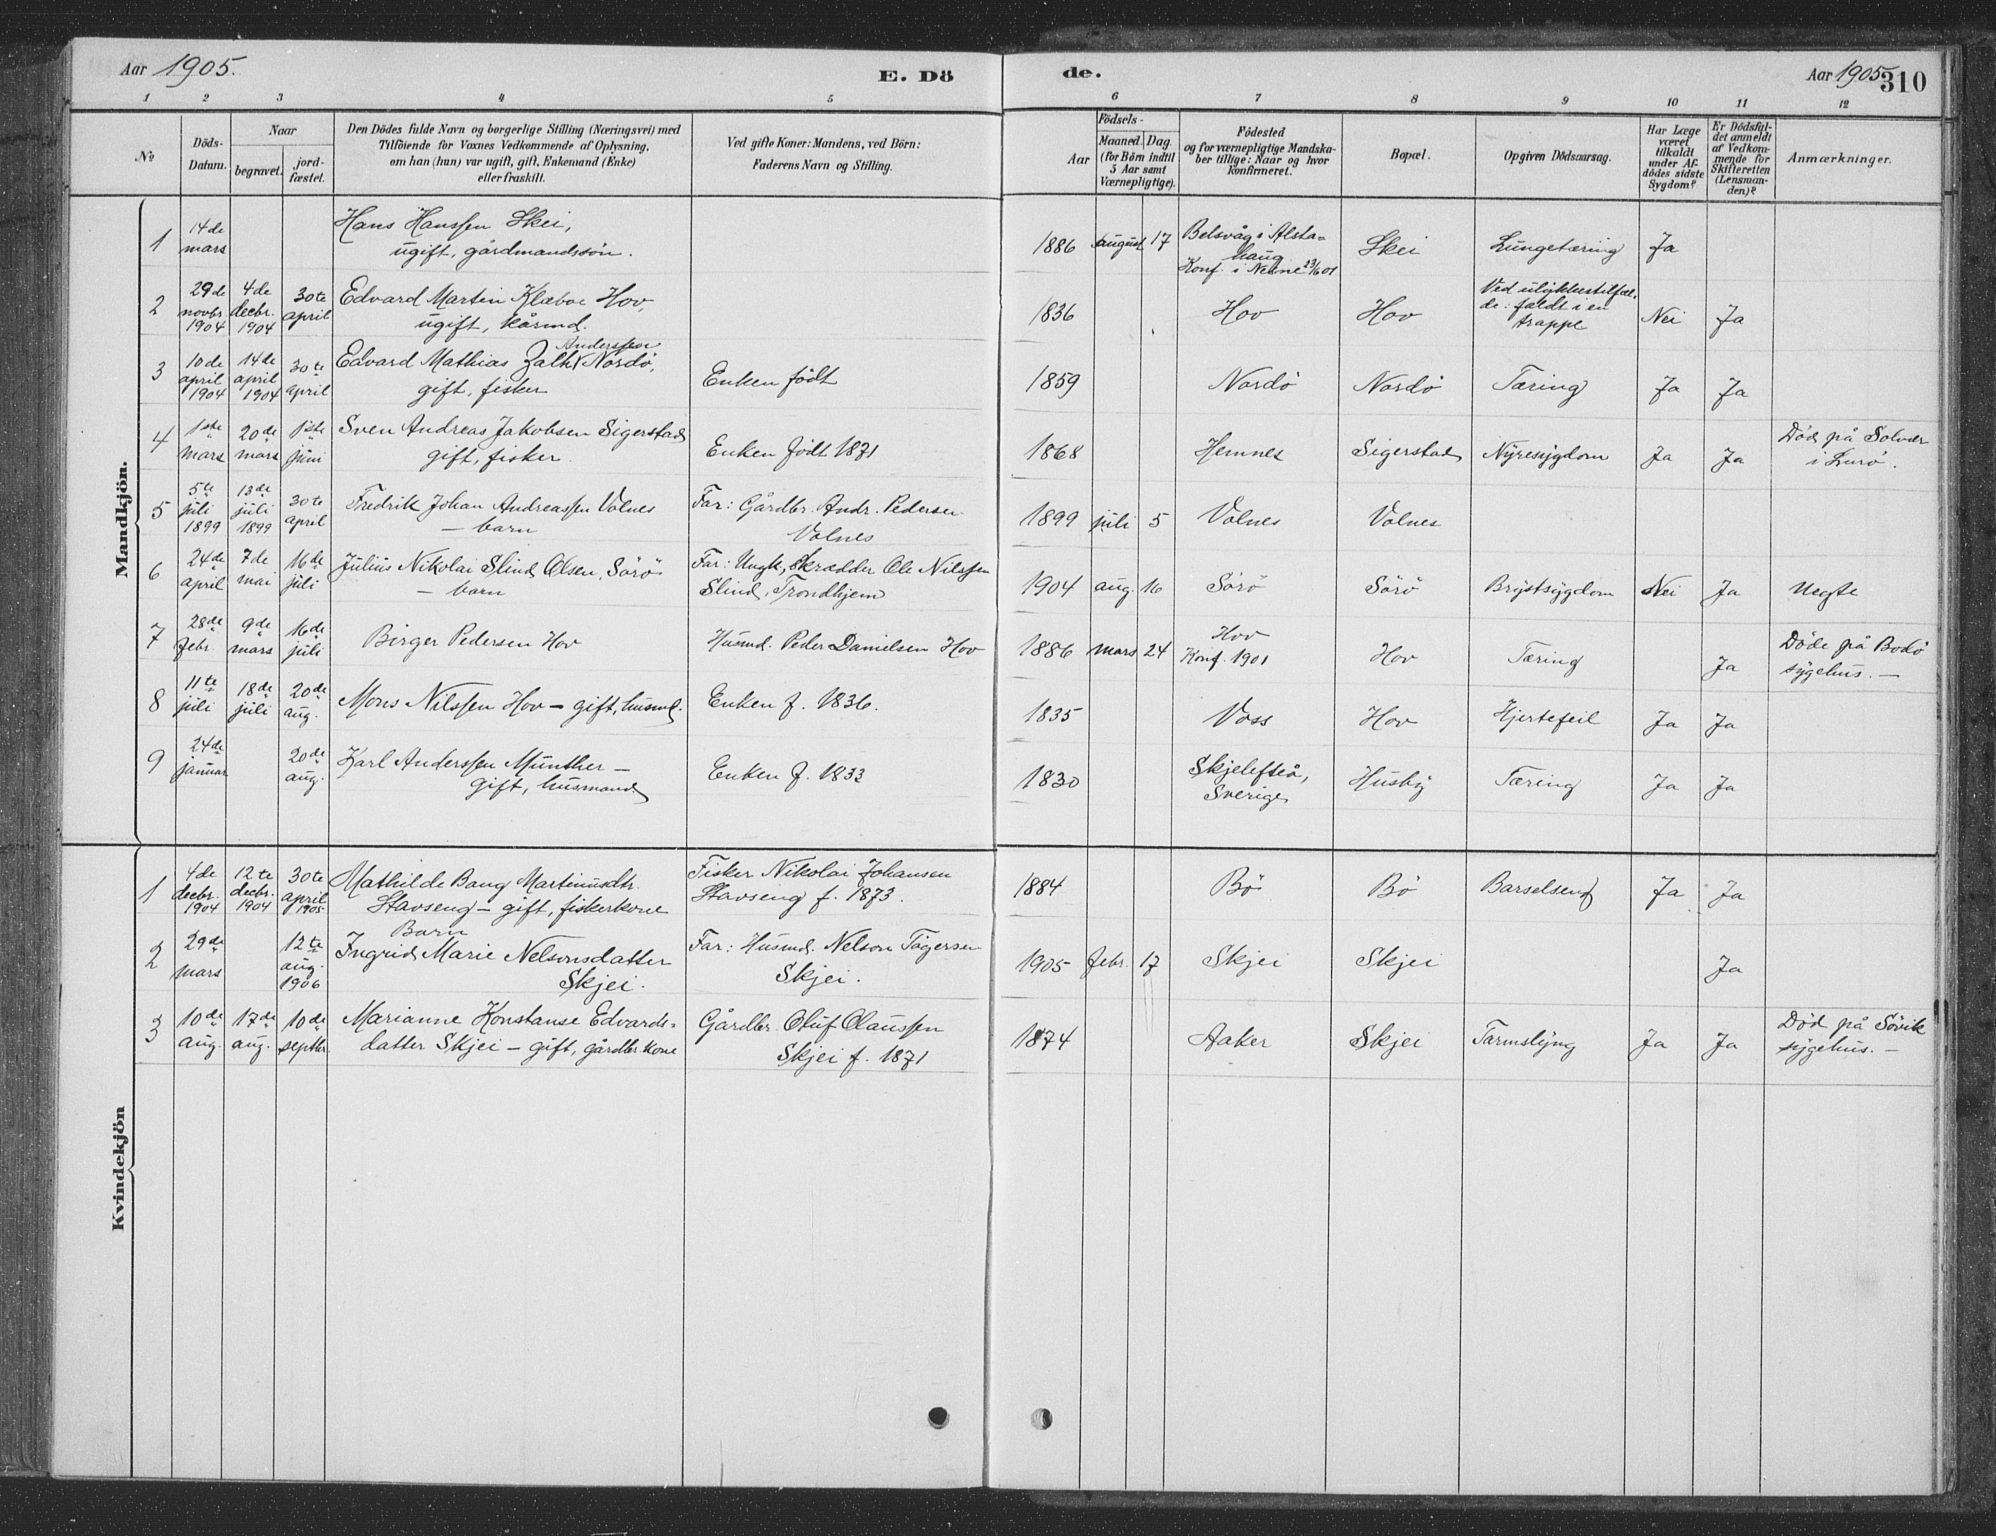 Aar 1905.
E. Dö
de.
Aar 1905
310
1 2 3 4 5 6 7 8 9 10 11 12
№
Döds-
Datum.
Naar
begravet.
jord-
fæstet.
Den Dödes fulde Navn og borgerlige Stilling (Næringsvei) med
Tilföiende for Voxnes Vedkommende af Oplysning,
om han (hun) var ugift, gift, Enkemand (Enke)
eller fraskilt.
Ved gifte Koner: Mandens, ved Börn:
Faderens Navn og Stilling.
Födsels-
Aar
Maaned. Dag.
(for Börn indtil
5 Aar samt
Værnepligtige).
Födested
og for værnepligtige Mandska-
ber tillige: Naar og hvor
konfirmeret.
Bopæl.
Opgiven Dödsaarsag.
Har Læge
været
tilkaldt
under Af-
dödes sidste
Sygdom?
Er Dödsfal-
det anmeldt
af Vedkom-
mende for
Skifteretten
(Lensman-
den)?
Anmærkninger.
Mandkjön.
1
14de
mars
Hans Hanssen Skei,
ugift, gårdmandssön.
1886 august 17
Belsvåg i Alsta-
haug
Konf. i Nesne 23/6 01
Skei
Lungetæring
Ja
2
29de
novbr.
1904
4de
decbr.
1904
30te
april
Edvard Martin Klæboe Hov,
ugift, kårmd.
1836
Hov
Hov
Ved ulykkestilfæl-
de: faldt i en
trappe
Nei
Ja
3
10de
april
1904
14de
april
1904
30te
april
Anderssen
Edvard Mathias Zahl Nordö,
gift, fisker
Enken født
1859
Nordö
Nordö
Tæring
Ja
Ja
4
1ste
mars
20de
mars
1ste
juni
Sven Andreas Jakobsen Sigerstad
gift, fisker
Enken født 1871
1868
Hemnes
Sigerstad
Nyresygdom
Ja
Ja
Død på Solvær
i Lurö.
5
5te
juli
1899
13de
juli
1899
30te
april
Fredrik Johan Andreassen Volnes
– barn
Far: Gårdbr. Andr. Pedersen
Volnes
1899 juli 5
Volnes
Volnes
6
24de
april
7de
mai
16de
juli
Julius Nikolai Slind Olsen, Sörö
– barn
Far: Ungk., Skrædder Ole Nilssen
Slind, Trondhjem
1904 aug. 16
Sörö
Sörö
Brystsygdom
Nei
Ja
Uegte
7
28de
febr.
9de
mars
16de
juli
Birger Pedersen Hov
Husmd. Peder Danielsen Hov
1886 mars 24
Hov
Konf. 1901
Hov
Tæring
Ja
Døde på Bodö
sygehus. –
8
11te
juli
18de
juli
20de
aug.
Mons Nilssen Hov – gift, husmd.
Enken f. 1836.
1835
Voss
Hov
Hjertefeil
Ja
Ja
9
24de
januar
20de
aug.
Karl Anderssen Munther –
gift, husmand
Enken f. 1833
1830
Skjelefteå,
Sverige
Husby
Tæring
Ja
Ja
Kvindekjön
1
4de
decbr.
1904
12te
decbr.
1904
30te
april
1905
Mathilde Bang Martinusdtr.
Stavseng – gift, fiskerkone
Fisker Nikolai Johansen
Stavseng f. 1873.
1884
Bö
Bö
Barselseng
Ja
Ja
2
29de
mars
12te
aug.
1906
Barn
Ingrid Marie Nelsonsdatter
Skjei.
Far: Husmd. Nelson Tögersen
Skjei.
1905 febr. 17
Skjei
Skjei
Ja
3
10de
aug.
17de
aug.
10de
septbr.
Marianne Konstanse Edvards-
datter Skjei – gift, gårdbr kone
Gårdbr. Oluf Olaussen
Skjei f. 1871
1874
Aaker
Skjei
Tarmslyng
Ja
Ja
Død på Søvik
sygehus. –